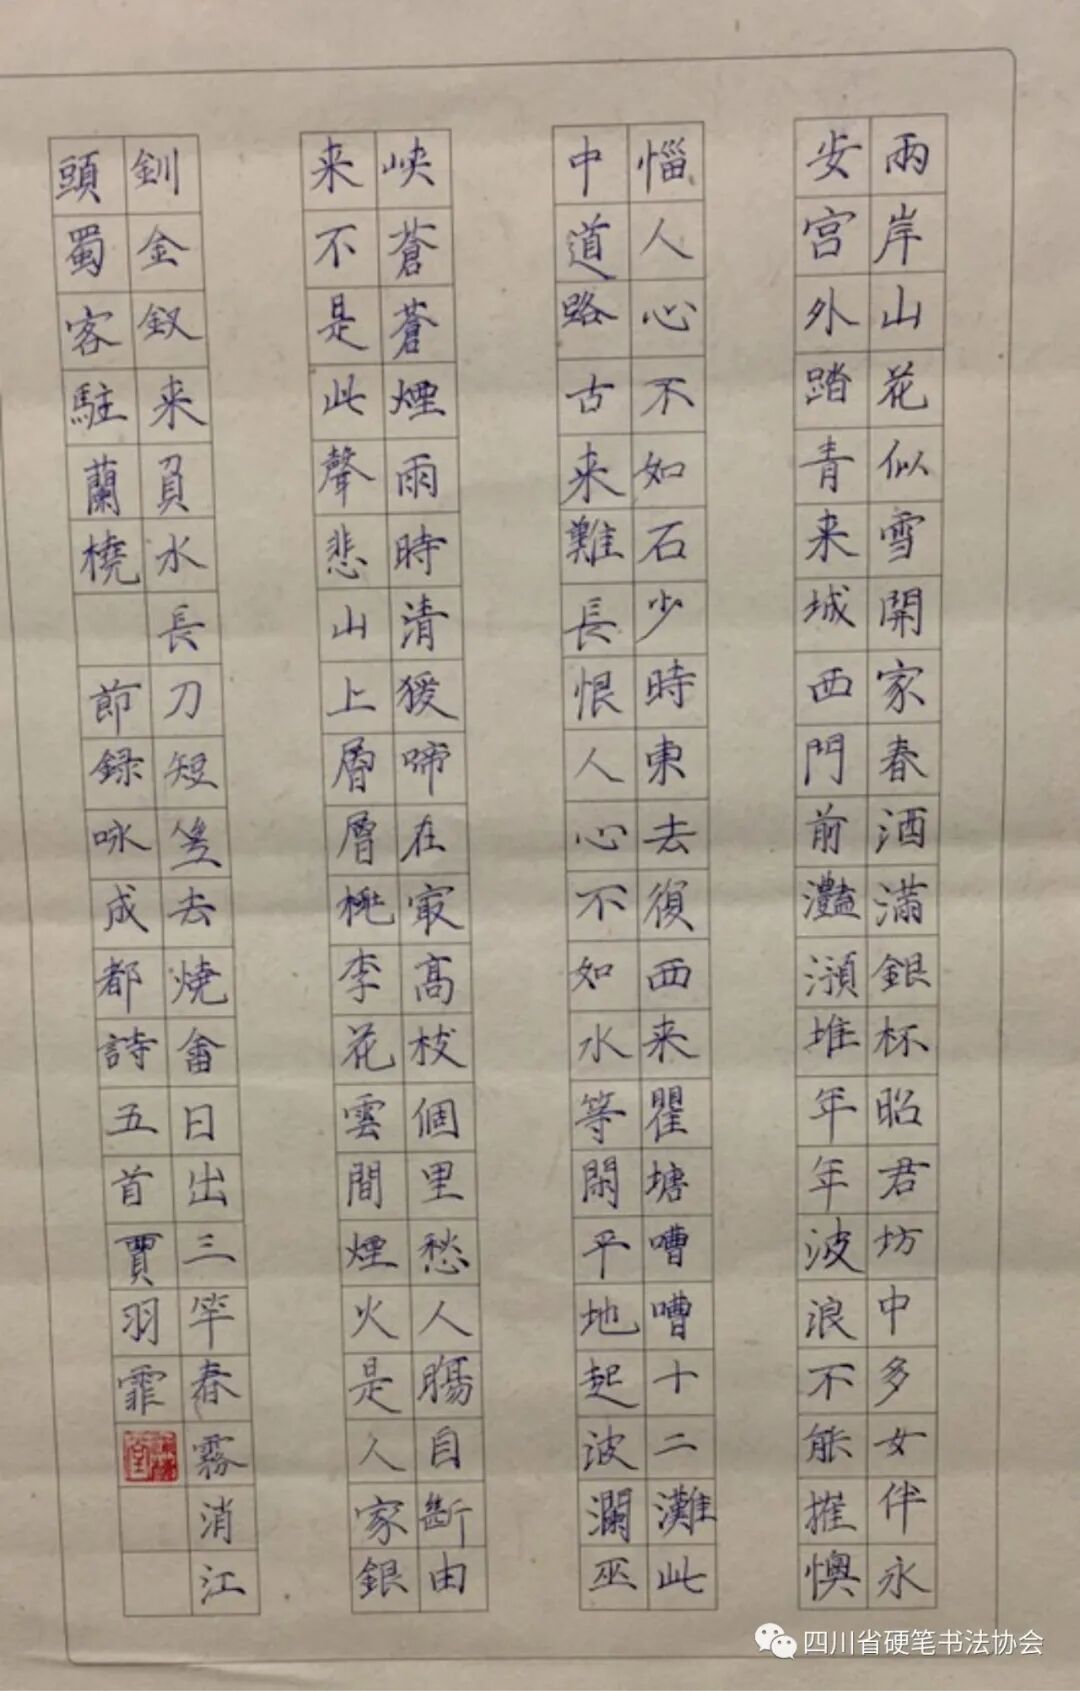 兩岸山花似雪開家春酒滿銀杯昭君坊中多女伴永
安宮外踏青来城西門前灧澦堆年年波浪不能摧懊
惱人心不如石少時東去復西来瞿塘嘈嘈十二灘此
中道路古来難長恨人心不如水等閑平地起波瀾巫
峽蒼蒼煙雨時清猨啼在最高枝個里愁人腸自斷由
来不是此聲悲山上層層桃李花雲間煙火是人家銀
釧金釵来負水長刀短笠去燒畬日出三竿春霧消江
頭蜀客駐蘭橈 節録咏成都詩五首賈羽霏
四川省硬笔书法协会